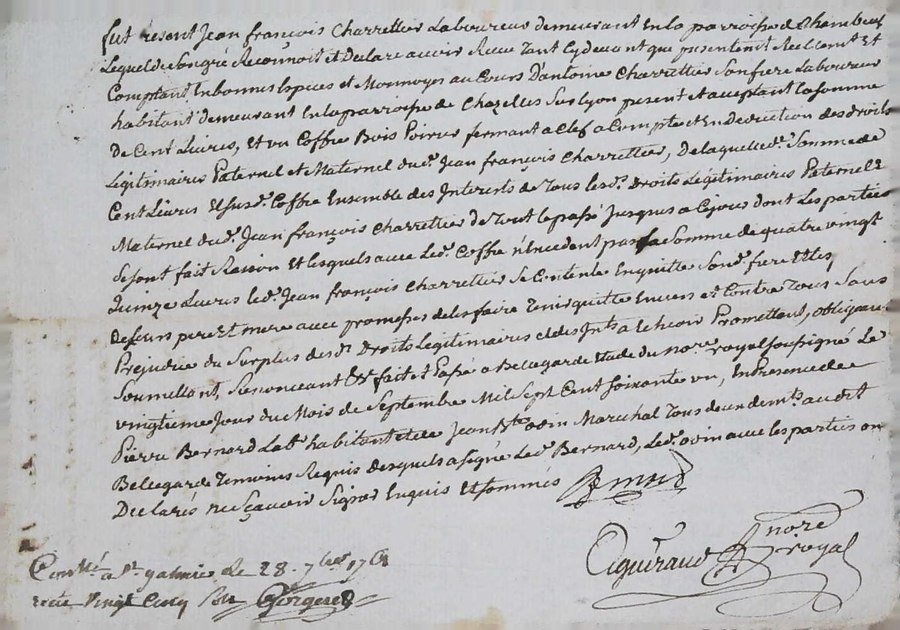 fut présent Jean françois Charrettier Laboureur demeurant En la parroisse de Chambeuf
Lequel de son gré Reconnoit et Declare avoir Receu Tant cy devant que presentemt Reellemt Et
Comptant En bonnes Especes et Monnoyes au Cours D'antoine Charrettier son frere Laboureur
habitant demeurant En la parroisse de Chazelles sur Lyon present et acceptant la somme
De Cent Livres, Et un Coffre Bois Poirier fermant a Clef a Compte et En deduction des droits
Légitimaires Paternel et Maternel dud. Jean françois Charrettier, De laquelle d. Somme de
Cent Livres Et susd. Coffre Ensemble des Interets de Tous lesd. Droits Légitimaires Paternel Et
Maternel dud. Jean françois Charrettier de Tout le passé Jusques a Ce jour dont Les parties
se sont fait Raison Et lesquels avec Led. Coffre n'Excedent pas la Somme de quatre vingt
Quinze Livres led. Jean françois Charrettier se Contente En quitte Sond. frere Et les
De feurs pere Et mere avec promesses de les faire Tenir quitte Envers Et Contre Tous Sans
Prejudice du Surplus desd. Droits Légitimaires et des Intts a Echeoir Promettant, obligeant
Soumettant, Renonceant &c fait Et Passé a Bellegarde Etude du nore. royal soussigné Le
vingtieme Jour du Mois de Septembre Mil Sept Cent soixante un, En Presence de
Pierre Bernard Labr. habitant et de Jean Bte. ovin Marechal Tous deux demts. audit
Bellegarde Temoins Requis desquels a signé Led. Bernard, Led. ovin avec les parties on
Declarés ne sçavoir Signer Enquis Et sommés Bernard
Eiguiraud nore royal
Conllé a St. galmier Le 28. 7bre 1761
recu Vingt Cinq sols Gorgeret